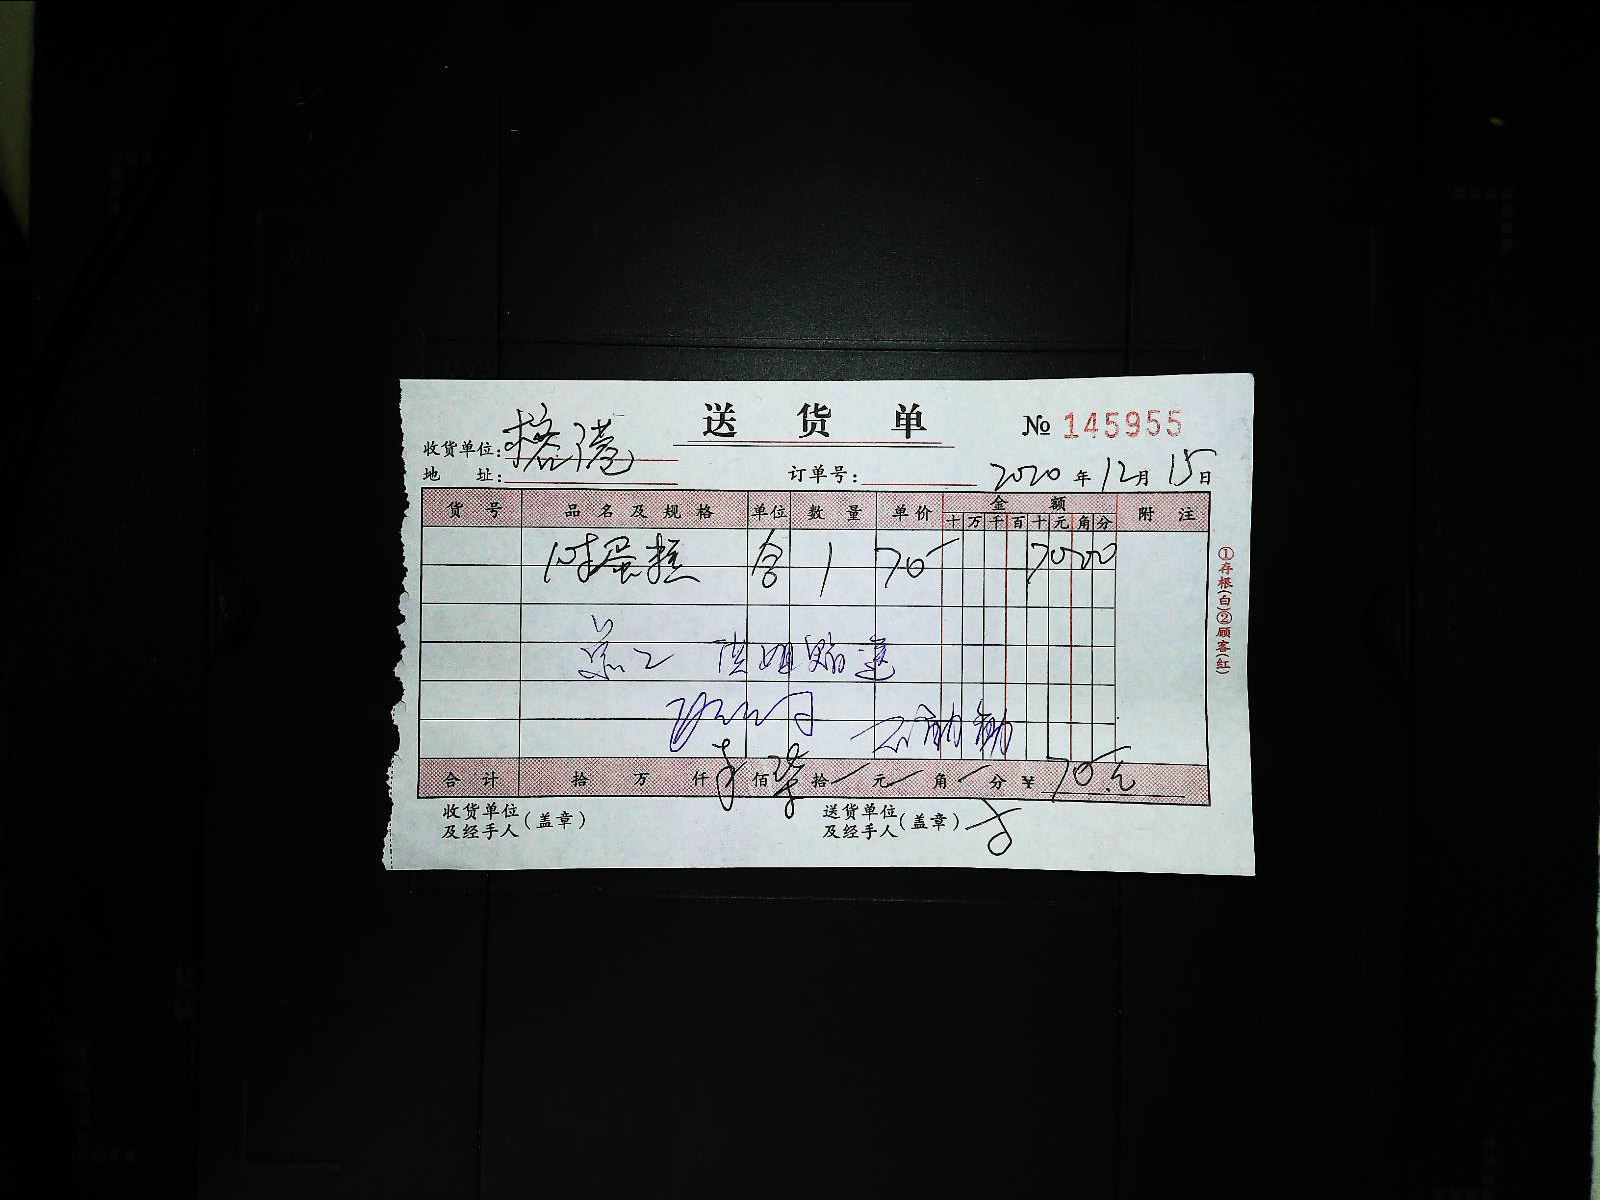 送货单
№ 145955
收货单位：榕港
地 址：
订单号：
2020年12月15日
货号 品名及规格 单位 数量 单价 金额 附注
十 万 千 百 十 元 角 分
10寸蛋糕 合 1 70- 7000
合计 拾 万 仟 佰 柒 拾 元 角 分 ¥ 70元
收货单位
及经手人（盖章）
送货单位
及经手人（盖章）
①存根(白)②顾客(红)